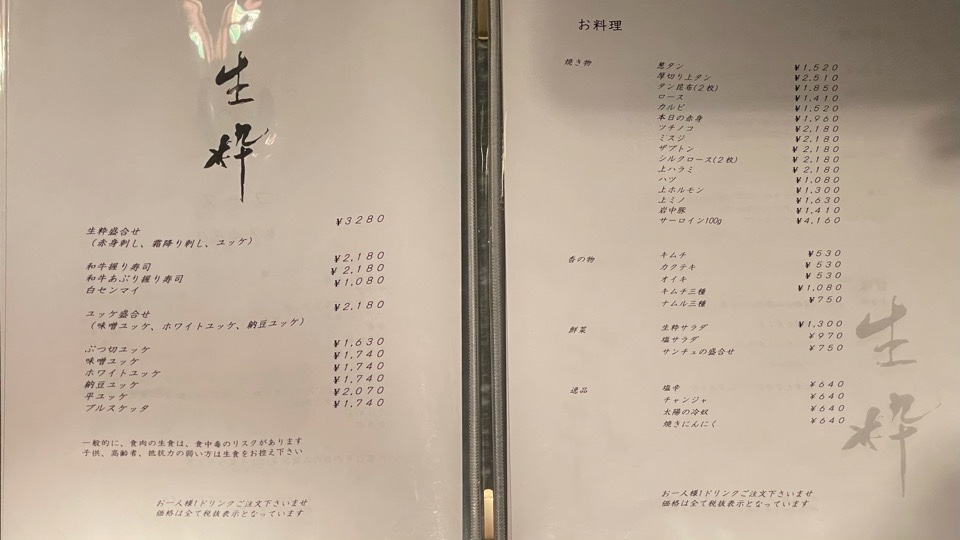 生粋
生粋盛合せ ¥3280
(赤身刺し、霜降り刺し、ユッケ)
和牛握り寿司 ¥2,180
和牛あぶり握り寿司 ¥2,180
白センマイ ¥1,080
ユッケ盛合せ ¥2,180
(味噌ユッケ、ホワイトユッケ、納豆ユッケ)
ぶつ切ユッケ ¥1,630
味噌ユッケ ¥1,740
ホワイトユッケ ¥1,740
納豆ユッケ ¥1,740
平ユッケ ¥2,070
ブルスケッタ ¥1,740
一般的に、食肉の生食は、食中毒のリスクがあります
子供、高齢者、抵抗力の弱い方は生食をお控え下さい
お一人様1ドリンクご注文下さいませ
価格は全て税抜表示となっています
お料理
焼き物
葱タン ¥1,520
厚切り上タン ¥2,510
タン昆布(2枚) ¥1,850
ロース ¥1,410
カルビ ¥1,520
本日の赤身 ¥1,960
ツチノコ ¥2,180
ミスジ ¥2,180
ザブトン ¥2,180
シルクロース(2枚) ¥2,180
上ハラミ ¥2,180
ハツ ¥1,080
上ホルモン ¥1,300
上ミノ ¥1,630
岩中豚 ¥1,410
サーロイン100g ¥4,160
香の物
キムチ ¥530
カクテキ ¥530
オイキ ¥530
キムチ三種 ¥1,080
ナムル三種 ¥750
鮮菜
生粋サラダ ¥1,300
塩サラダ ¥970
サンチュの盛合せ ¥750
逸品
塩辛 ¥640
チャンジャ ¥640
太陽の冷奴 ¥640
焼きにんにく ¥640
生粋
お一人様1ドリンクご注文下さいませ
価格は全て税抜表示となっています